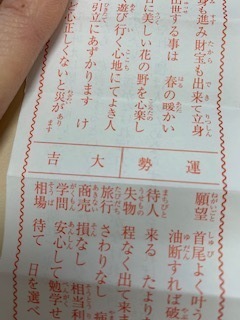 身も進み財宝も出来て立身
出世する事は 春の暖かい
に美しい花の野を心楽し
遊び行く心地にてよき人
引立にあずかります け
心正しくないと災があります
運勢 大吉
願望 首尾よく叶う
油断すれば破
待人 来る たより
失物 程なく出て来ま
旅行 さわりなし
商売 損なし 相当利
学問 安心して勉学せ
相場 待て
日を選べ